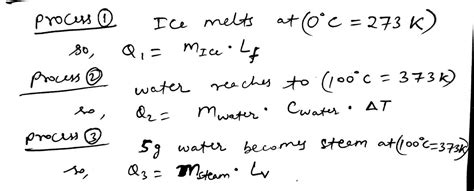 Process ① Ice melts at (0°C = 273 K)
so, Q₁ = mIce · Lf
Process ② water reaches to (100°C = 373K)
so, Q₂ = mwater · Cwater · ΔT
Process ③ 5g water becomes steam at (100°C=373K)
so, Q₃ = msteam · Lv